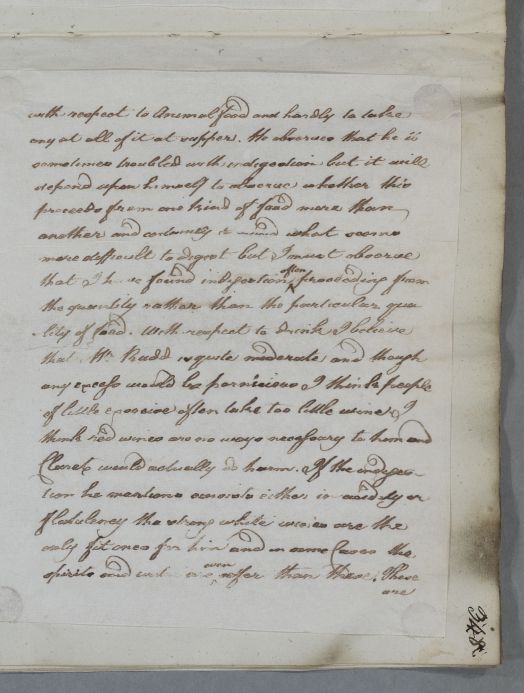 with respect to Animal food and hardly to take
any at all of it at supper. He observes that he is
sometimes troubled with indigestion but it will
depend upon himself to observe whether this
proceeds from one kind of food more than
another and certainly to what seems
more difficult to digest but I must observe
that I have found indigestion often proceeding from
the quantity rather than the particular qua
lity of food. With respect to Drink I believe
that Mr. Rudd is quite moderate and though
any excess would be pernicious I think people
of little exercise often take too little wine. I
think red wines are no ways necessary to him and
Claret would actually do harm. If the indiges
tion he mentions consists either in acidity or
flatulency the strong white wines are the
only fit ones for him and in some Cases the
spirits and water are even safer than these. These
are